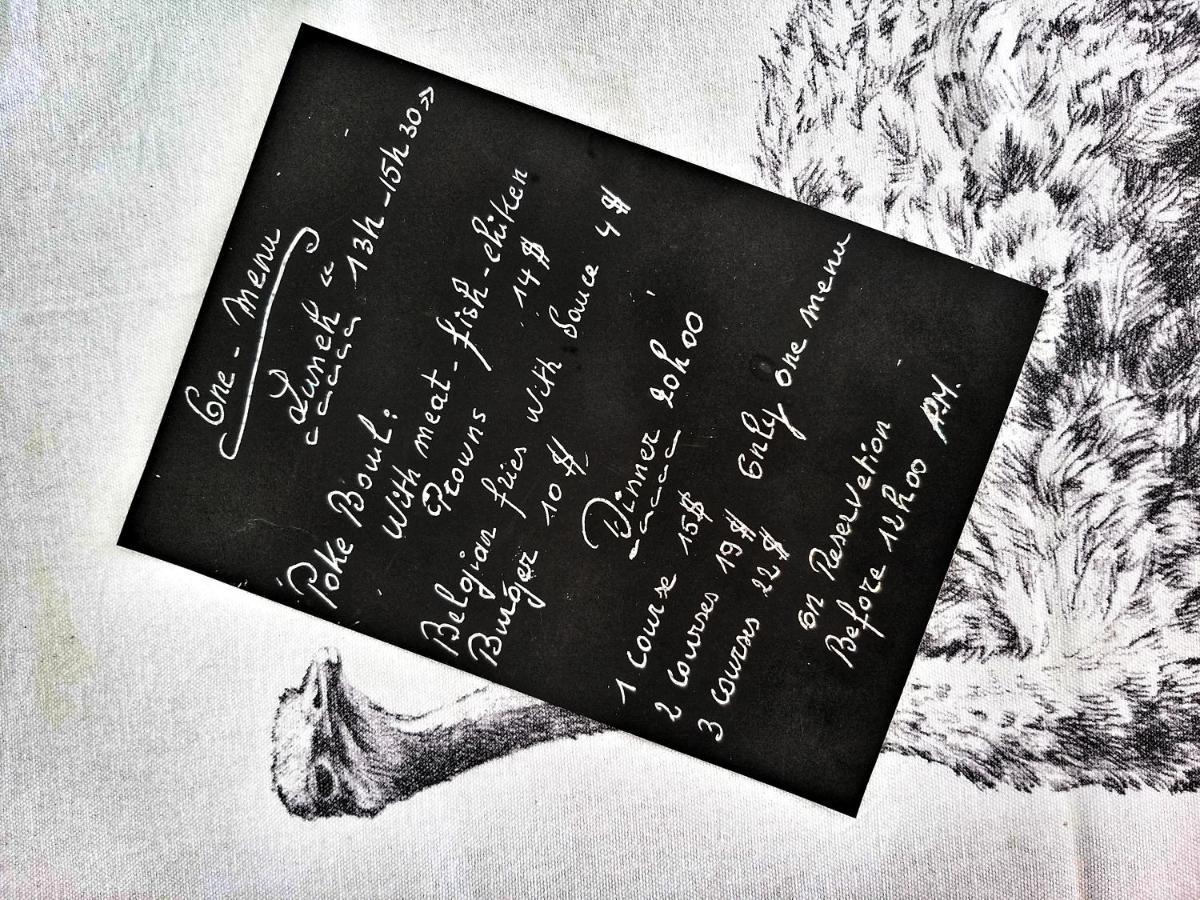 One - Menu
Lunch « 13h - 15h30 »
Poke Bowl:
With meat - fish - chiken
Prowns 14 $
Belgian fries with Sauce 4 $
Burger 10 $
Dinner 20h00
1 course 15 $
2 courses 19 $ Only one menu
3 courses 22 $
On Reservetion
Before 12h00 P.M.